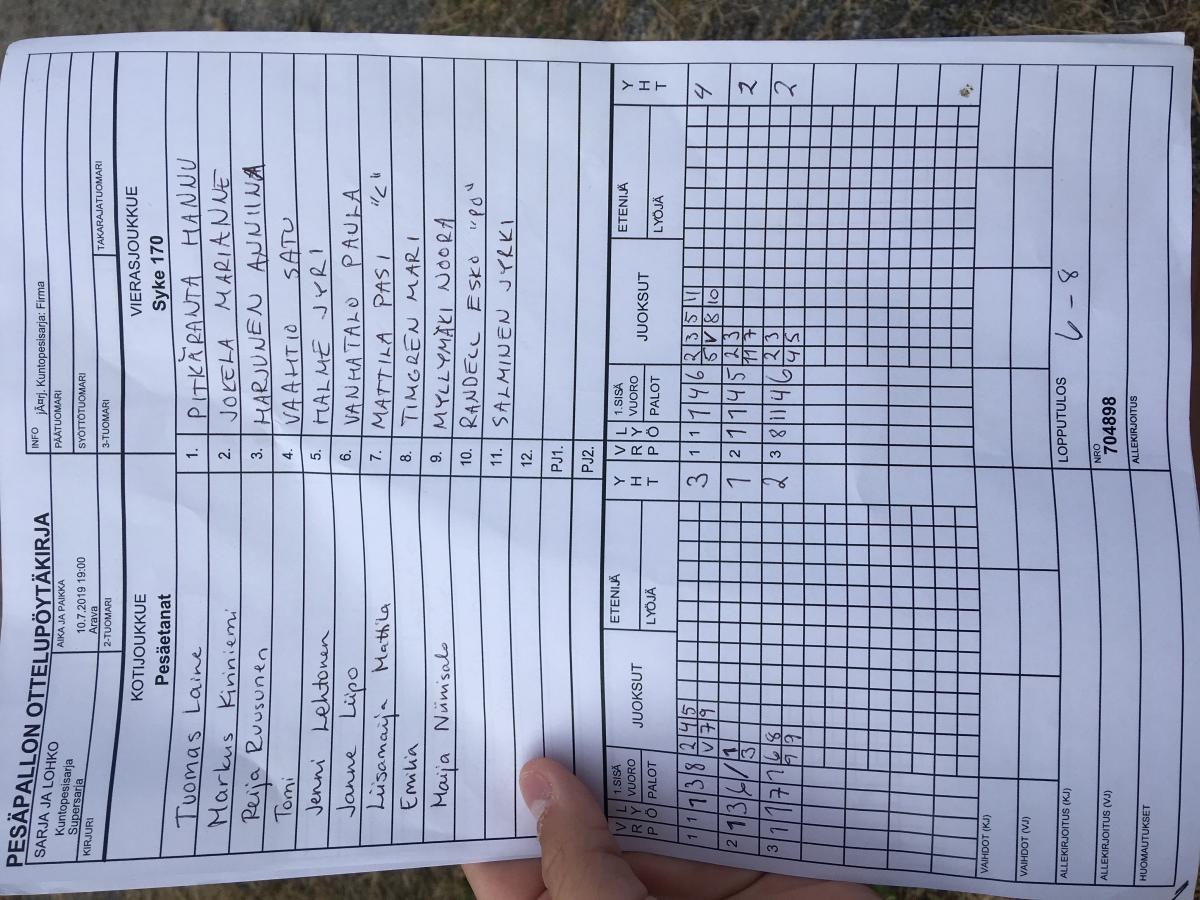 PESÄPALLON OTTELUPÖYTÄKIRJA
SARJA JA LOHKO
Kuntopesisarja
Supersarja
AIKA JA PAIKKA
10.7.2019 19:00
Arava
INFO jÃ¤rj. Kuntopesisarja: Firma
PÄÄTUOMARI
SYÖTTÖTUOMARI
KIRJURI
2-TUOMARI
3-TUOMARI
TAKARAJATUOMARI
KOTIJOUKKUE
Pesäetanat
VIERASJOUKKUE
Syke 170
Tuomas Laine 1. PITKÄRANTA HANNU
Markus Kiviniemi 2. JOKELA MARIANNE
Reija Ruusunen 3. HARJUNEN ANNIINA
Tomi 4. VAAHTIO SATU
Jenni Lehtonen 5. HALME JYRI
Janne Liipo 6. VANHATALO PAULA
Liisamaija Mattila 7. MATTILA PASI "C"
Emilia 8. TIMGREN MARI
Maija Niinisalo 9. MYLLYMÄKI NOORA
10. RANDELL ESKO "PO"
11. SALMINEN JYRKI
12.
PJ1.
PJ2.
V R P L Y Ö 1.SISÄ VUORO PALOT JUOKSUT ETENIJÄ LYÖJÄ Y H T V R P L Y Ö 1.SISÄ VUORO PALOT JUOKSUT ETENIJÄ LYÖJÄ Y H T
1 1 1 3 8 2 4 5 3 1 1 7 4 6 2 3 5 11 4
V 7 9 5 V 8 10
2 1 3 6 1 1 2 1 7 4 5 2 3 2
3 11 7
3 1 1 7 7 6 8 2 3 8 11 4 6 2 3 2
9 9 4 5
VAIHDOT (KJ)
VAIHDOT (VJ)
ALLEKIRJOITUS (KJ) LOPPUTULOS 6 - 8
ALLEKIRJOITUS (VJ) NRO 704898
HUOMAUTUKSET ALLEKIRJOITUS